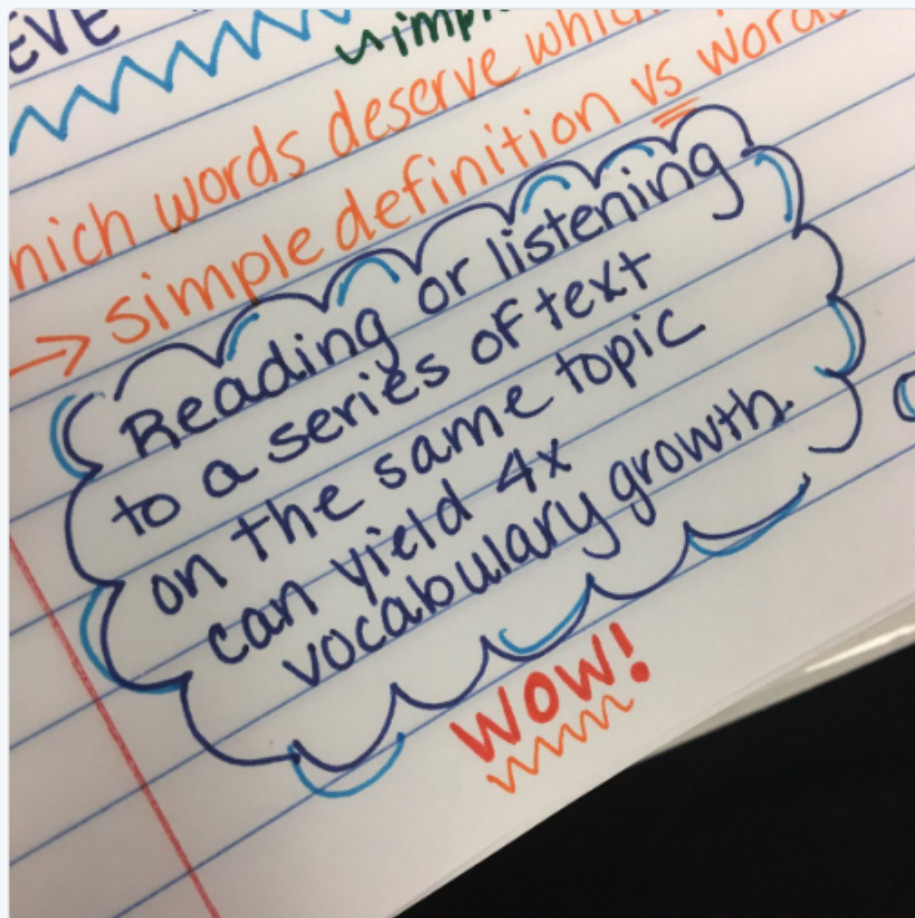 simple
which words deserve which
→ simple definition vs words
Reading or listening
to a series of text
on the same topic
can yield 4x
vocabulary growth.
WOW!